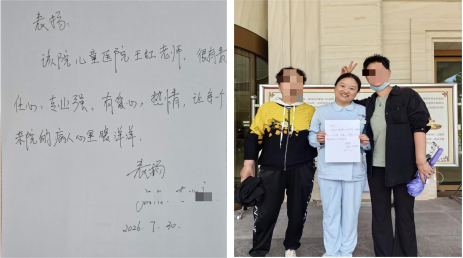 表扬:
该院儿童医院王红老师, 很有责
任心, 专业强, 有爱心, 热情, 让每个
来院的病人心里暖洋洋.
表扬
2026.7.30.